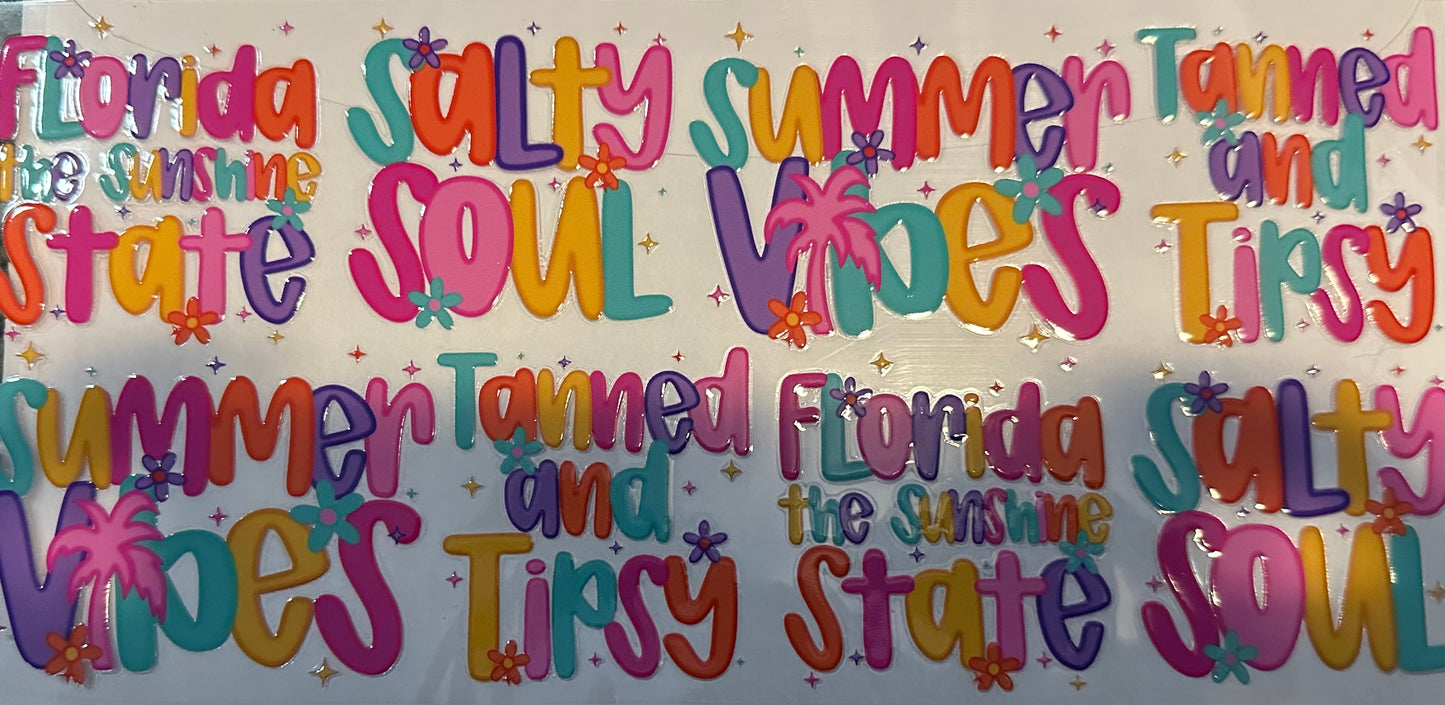 Florida
the Sunshine
State
Salty
Soul
Summer
Vibes
Tanned
and
Tipsy
Summer
Vibes
Tanned
and
Tipsy
Florida
the Sunshine
State
Salty
Soul